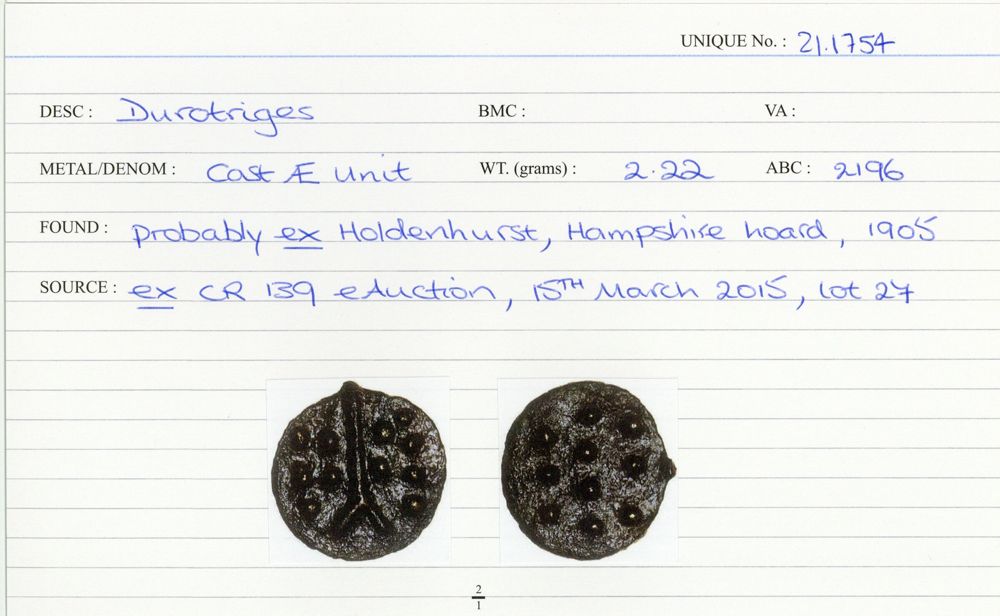 UNIQUE No. : 21.1754
DESC : Durotriges BMC : VA :
METAL/DENOM : Cast Æ Unit WT. (grams) : 2.22 ABC : 2196
FOUND : probably ex Holdenhurst, Hampshire hoard, 1905
SOURCE : ex CR 139 eAuction, 15TH March 2015, lot 27
2
1